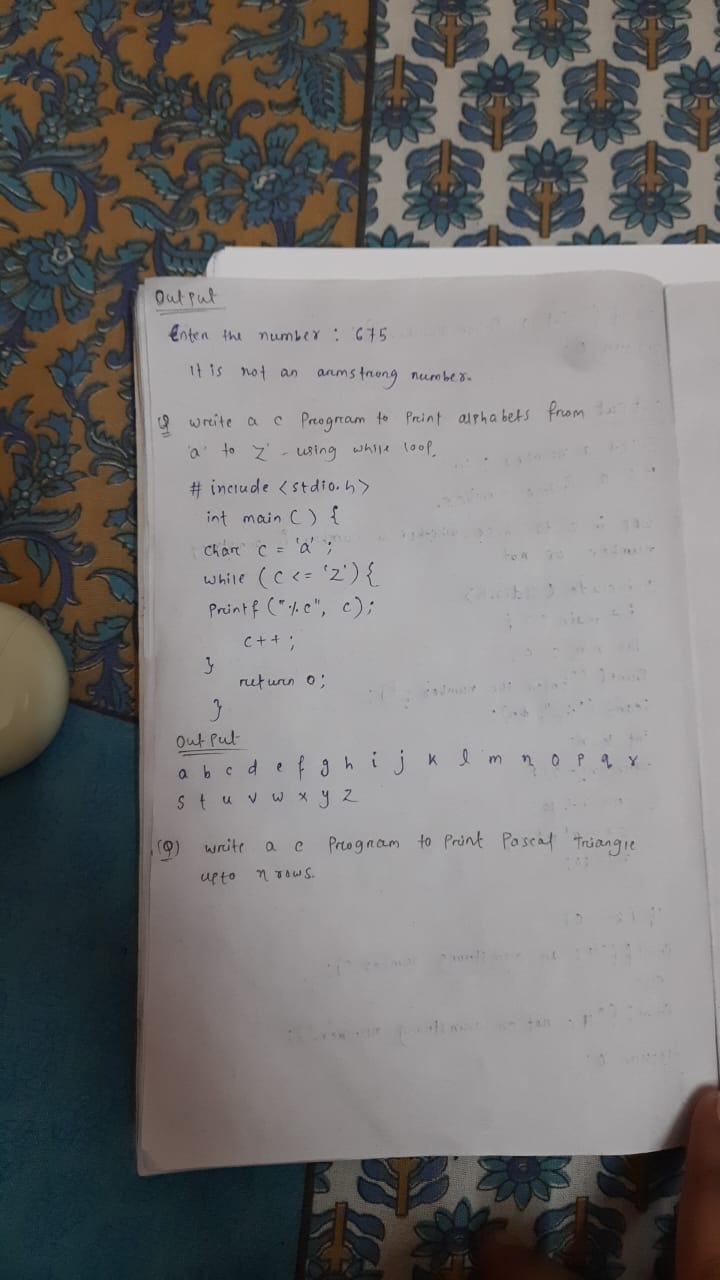 Output
Enter the number : 675
It is not an armstrong number.
Q write a c Program to Print alphabets from
'a' to 'z' - using while loop.
# include <stdio.h>
int main () {
char c = 'a' ;
while (c <= 'z') {
Printf ("%c", c);
c++ ;
}
return 0;
}
Output
a b c d e f g h i j k l m n o p q r
s t u v w x y z
(Q) write a c Program to Print Pascal Triangle
upto n rows.